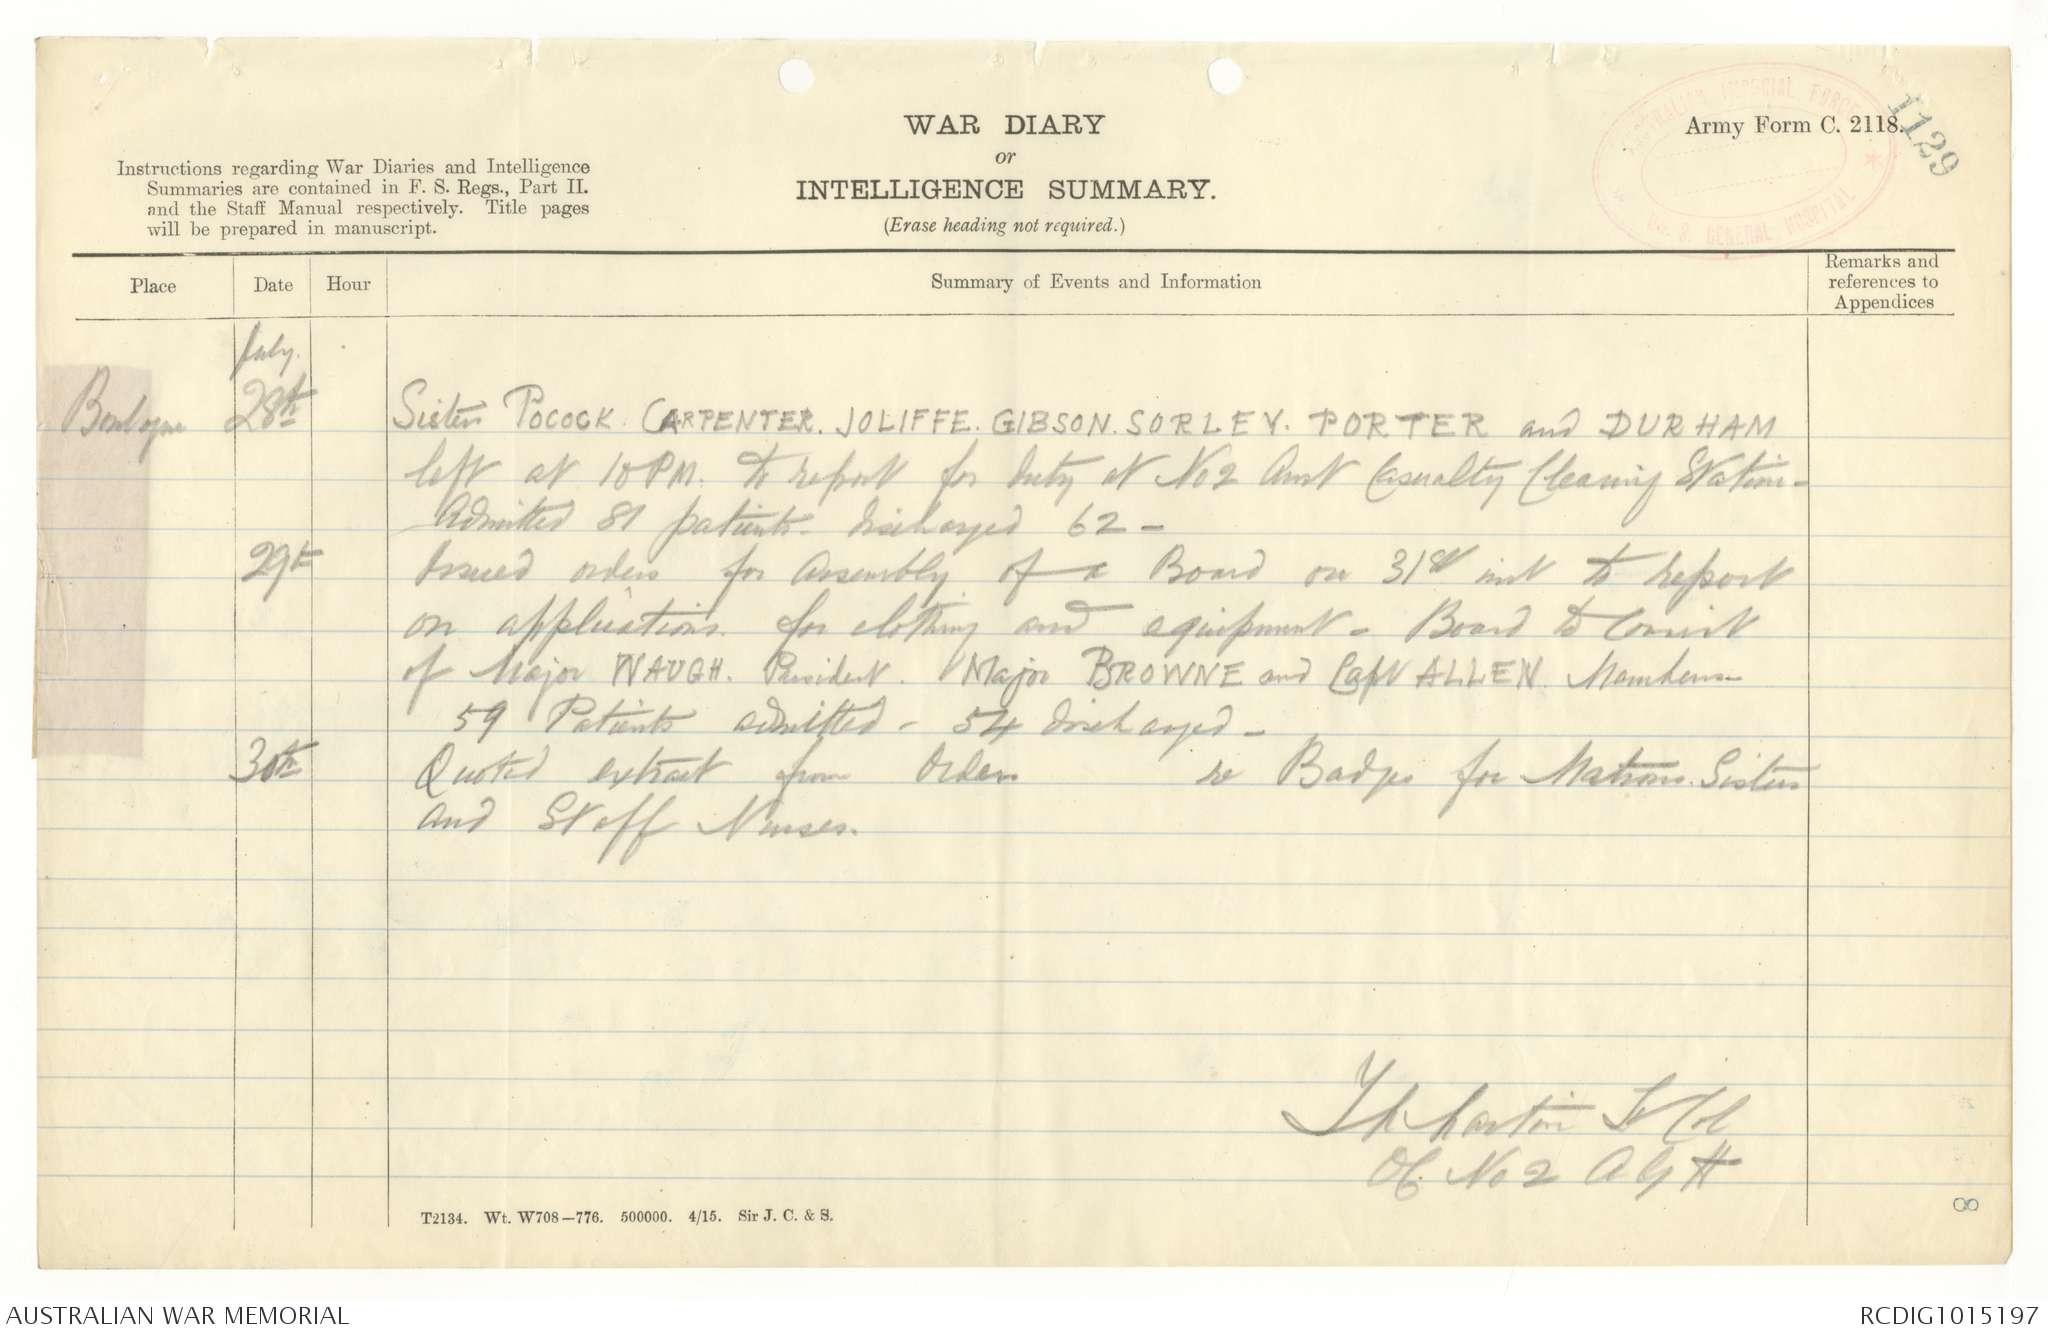 WAR DIARY
or
INTELLIGENCE SUMMARY.
(Erase heading not required.)
Army Form C. 2118.
1129
AUSTRALIAN IMPERIAL FORCE
GENERAL HOSPITAL
Instructions regarding War Diaries and Intelligence
Summaries are contained in F. S. Regs., Part II.
and the Staff Manual respectively. Title pages
will be prepared in manuscript.
Place Date Hour Summary of Events and Information Remarks and
references to
Appendices
July.
Boulogne 28th Sisters POCOCK. CARPENTER. JOLIFFE. GIBSON. SORLEY. PORTER and DURHAM
left at 10 PM. to report for duty at No 2 Aust Casualty Clearing Station -
Admitted 81 patients - discharged 62 -
29th Issued orders for Assembly of a Board on 31st inst to report
on applications for clothing and equipment - Board to consist
of Major WAUGH. President. Major BROWNE and Capt ALLEN. Members -
59 Patients admitted - 54 discharged -
30th Quoted extract from Orders re Badges for Matrons. Sisters
and Staff Nurses.
Martin Lt Col
OC. No 2 A G H
T2134. Wt. W708—776. 500000. 4/15. Sir J. C. & S.
8
AUSTRALIAN WAR MEMORIAL
RCDIG1015197